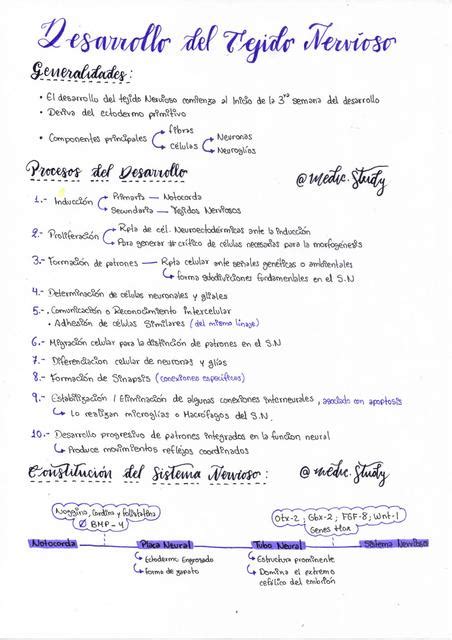 Desarrollo del Tejido Nervioso
Generalidades:
• El desarrollo del tejido Nervioso comienza al Inicio de la 3ra semana del desarrollo
• Deriva del ectodermo primitivo
• Componentes principales
fibras
células
Neuronas
Neuroglias
Procesos del Desarrollo
@medic.study
1.- Inducción
Primaria — Notocorda
Secundaria — Tejidos Nerviosos
2.- Proliferación
Rpta de cél. Neuroectodérmicas ante la Inducción
Para generar # crítico de células necesarias para la morfogénesis
3.- Formación de patrones — Rpta celular ante señales genéticas o ambientales
forma subdivisiones fundamentales en el S.N
4.- Determinación de células neuronales y gliales
5.- • Comunicación o Reconocimiento intercelular
• Adhesión de células Similares (del mismo linaje)
6.- Migración celular para la distinción de patrones en el S.N
7.- Diferenciacion celular de neuronas y glías
8.- Formación de Sinapsis (conexiones específicas)
9.- Estabilización / Eliminación de algunas conexiones interneurales, asociado con apoptosis
Lo realizan microglías o Macrófagos del S.N.
10.- Desarrollo progresivo de patrones integrados en la funcion neural
Produce movimientos reflejos coordinados
Constitución del Sistema Nervioso:
@medic.study
Noggina, Cordina y Folistatina
Ø BMP-4
Otx-2 ; Gbx-2 ; FGF-8; Wnt-1
Genes Hox
Notocorda
Placa Neural
Tubo Neural
Sistema Nervioso
Ectodermo Engrosado
forma de zapato
Estructura prominente
Domina el extremo
cefálico del embrión